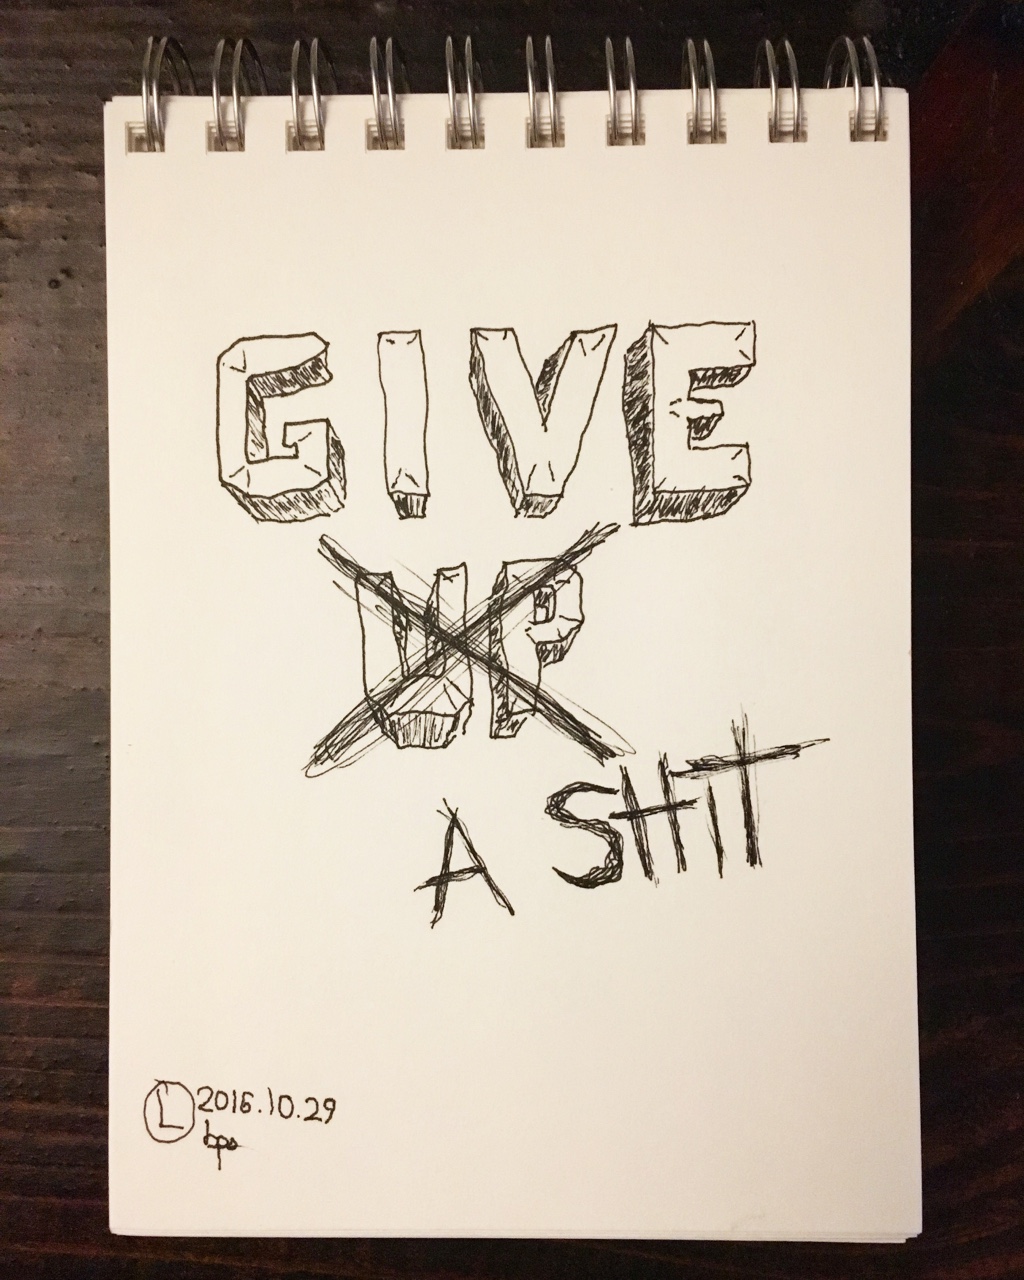 GIVE
UP
A SHIT
L 2016.10.29
bps